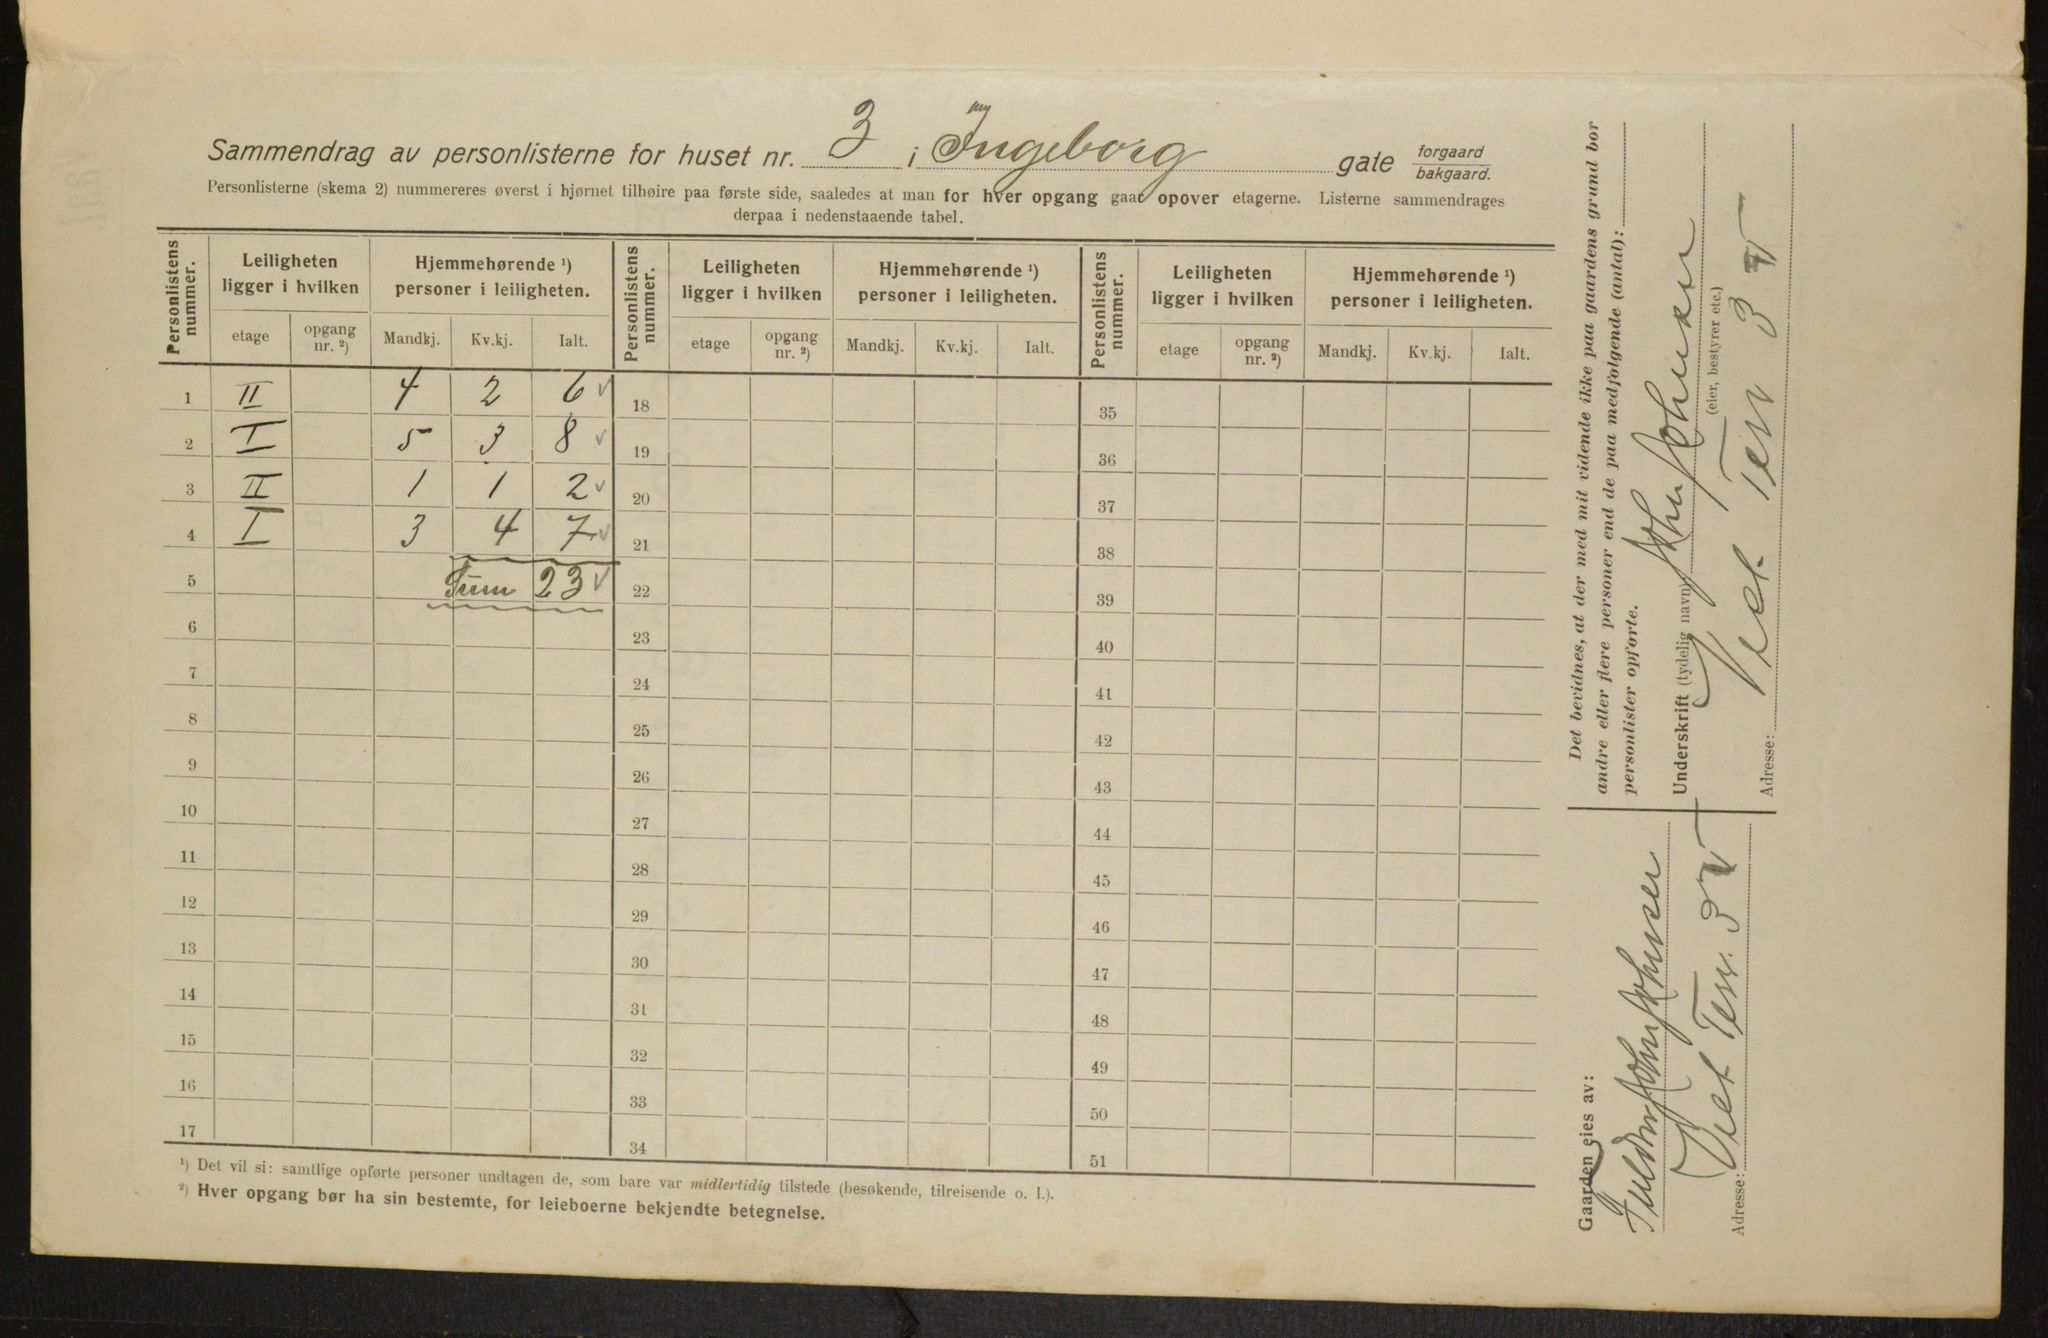 Sammendrag av personlisterne for huset nr. 3 i Ingeborg gate forgaard bakgaard.
Personlisterne (skema 2) nummereres øverst i hjørnet tilhøire paa første side, saaledes at man for hver opgang gaar opover etagerne. Listerne sammendrages
derpaa i nedenstaaende tabel.
Personlistens nummer. Leiligheten ligger i hvilken Hjemmehørende ¹) personer i leiligheten. Personlistens nummer. Leiligheten ligger i hvilken Hjemmehørende ¹) personer i leiligheten. Personlistens nummer. Leiligheten ligger i hvilken Hjemmehørende ¹) personer i leiligheten.
etage opgang nr. ²) Mandkj. Kv.kj. Ialt. etage opgang nr. ²) Mandkj. Kv.kj. Ialt. etage opgang nr. ²) Mandkj. Kv.kj. Ialt.
1 II 4 2 6 ✓ 18 35
2 I 5 3 8 ✓ 19 36
3 II 1 1 2 ✓ 20 37
4 I 3 4 7 ✓ 21 38
5 Sum 23 ✓ 22 39
6 23 40
7 24 41
8 25 42
9 26 43
10 27 44
11 28 45
12 29 46
13 30 47
14 31 48
15 32 49
16 33 50
17 34 51
¹) Det vil si: samtlige opførte personer undtagen de, som bare var midlertidig tilstede (besøkende, tilreisende o. l.).
²) Hver opgang bør ha sin bestemte, for leieboerne bekjendte betegnelse.
Det bevidnes, at der med mit vidende ikke paa gaardens grund bor
andre eller flere personer end de paa medfølgende (antal):
personlister opførte.
John Johnsen
Underskrift (tydelig navn)
(eier, bestyrer etc.)
Adresse: Vect. Terr 3
Gaarden eies av:
John Johnsen
Adresse: Vect Terr. 3